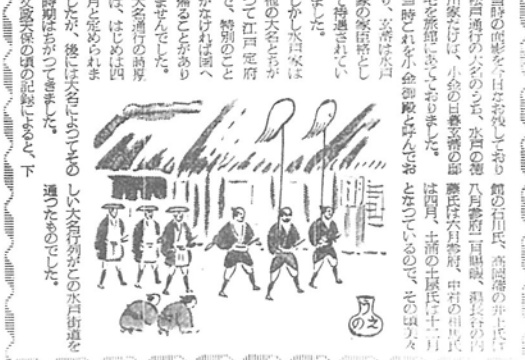 当時の面影を今日なお残しており
松戸通行の大名のうち、水戸の徳
川家だけは、小金の日暮玄蕃の邸
宅を旅館にあてておりました。
当時これを小金御殿と呼んでお
り、玄蕃は水戸
家の家臣格とし
て待遇されてい
ました。
しかし水戸家は
他の大名とちが
つて江戸定府
で、特別のこと
がなければ国へ
帰ることがあり
ませんでした。
大名通行の時期
は、はじめは四
月と定められま
したが、後には大名によつてその
時期はちがつてきました。
天保の頃の記録によると、下
館の石川氏、高岡藩の井上氏は
八月参府二月賜暇、湯長谷の内
藤氏は六月参府、中村の相馬氏
は四月、土浦の土屋氏は十二月
となつているので、その頃美々
しい大名行列がこの水戸街道を
通つたものでした。